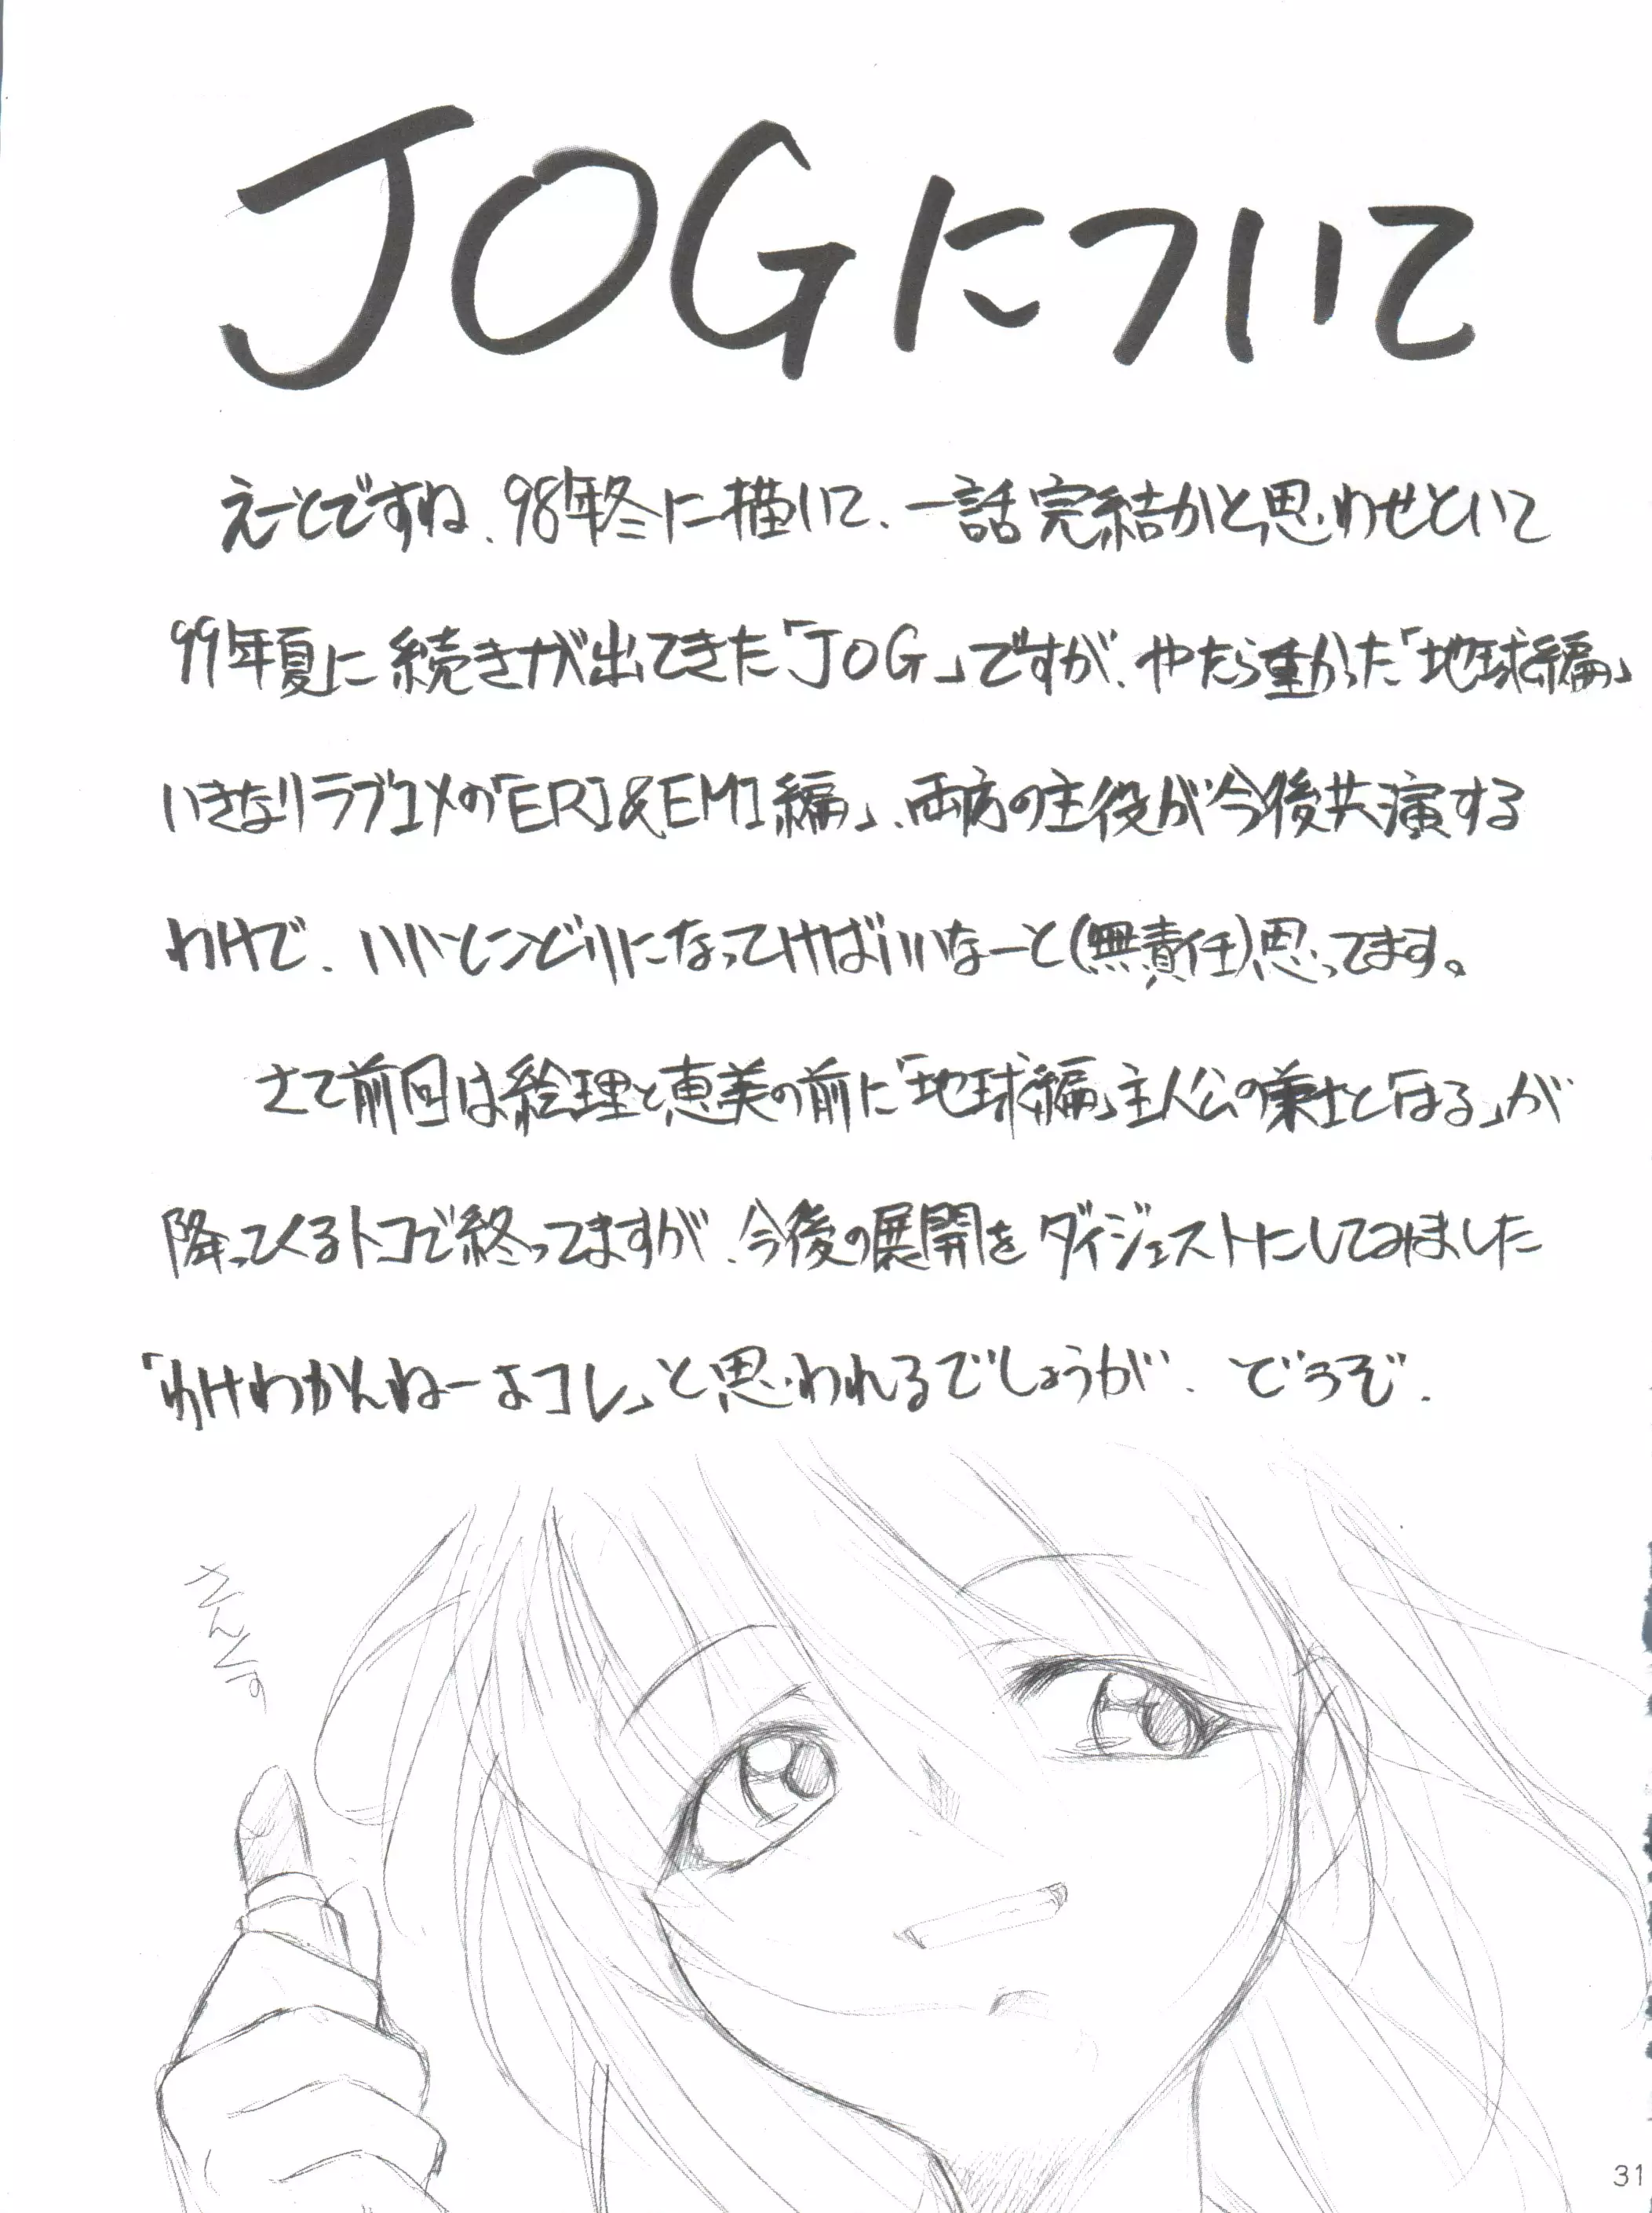 JOGについて
えーとですね、98年冬に描いて、一話完結かと思わせといて
99年夏に続きが出てきた「JOG」ですが、やたら重かった「地球編」
いきなりラブコメの「ERI&EMI編」、両方の主役が今後共演する
わけで、いいとこどりになってけばいいなーと(無責任)思ってます。
さて前回は絵理と恵美の前に「地球編」主人公の兼士と「はる」が
降ってくるトコで終ってますが、今後の展開をダイジェストにしてみました
「わけわかんねーよコレ」と思われるでしょうが、どうぞ.
がんば
31